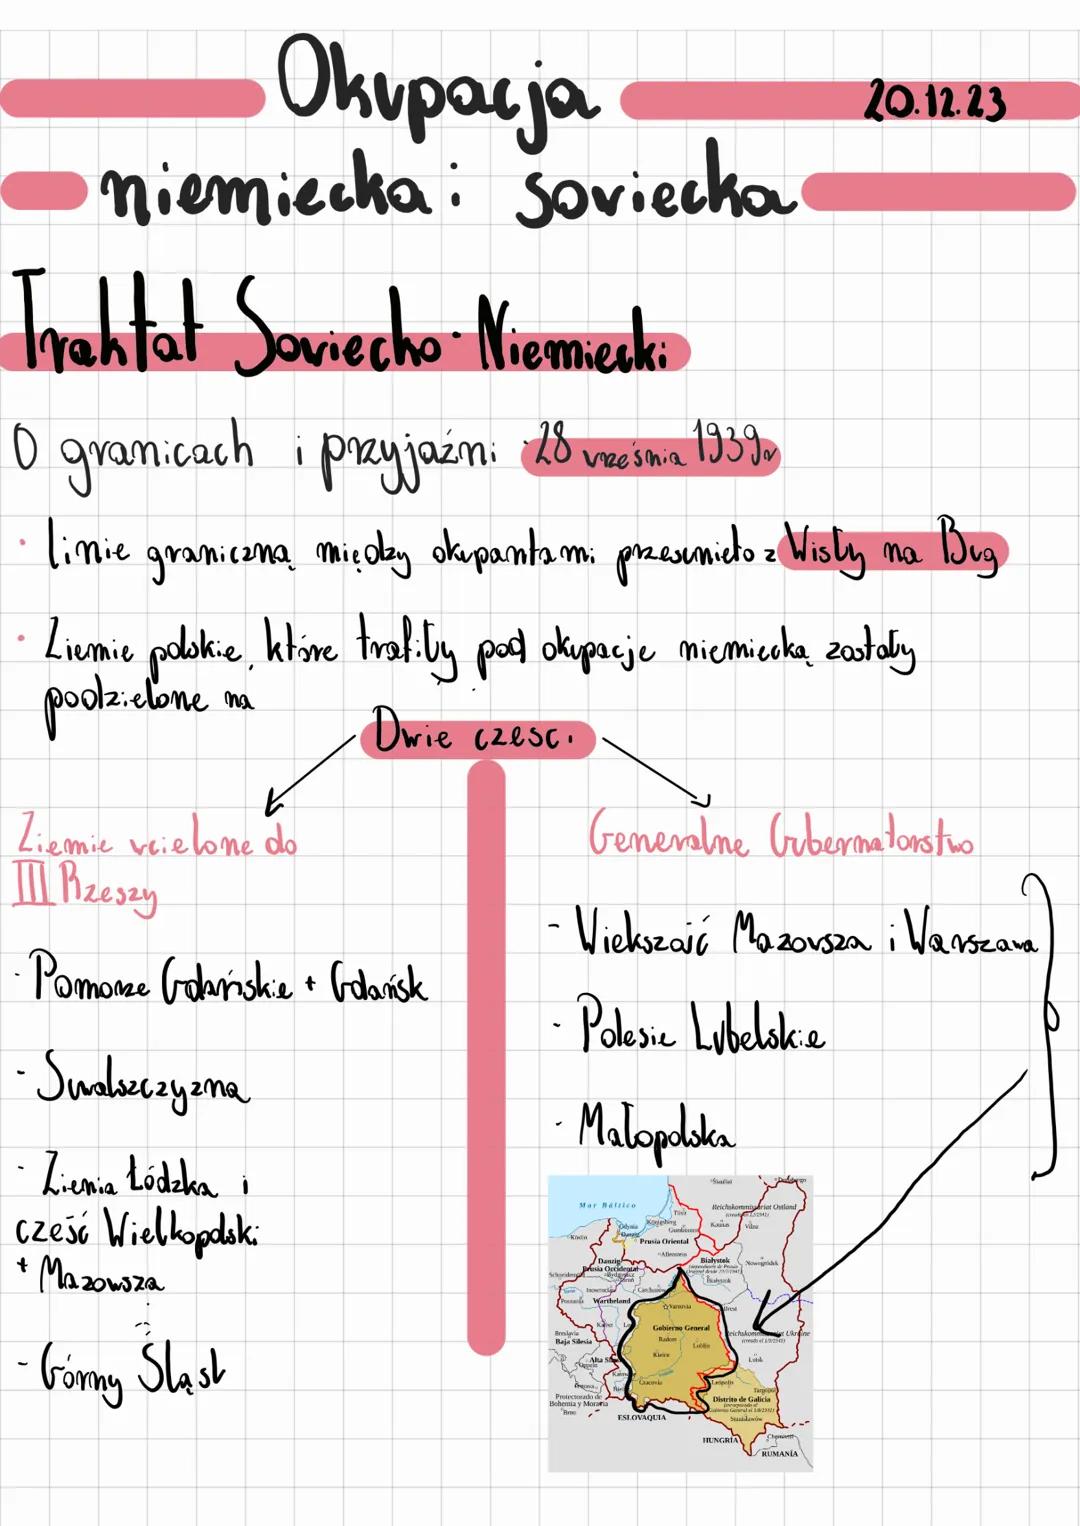 Okupacja
20.12.23
niemiecka i soviecka
Traktat Soviecko-Niemiecki
O granicach i przyjaźni 28 vrześnia 1939r
• linie graniczną między okupantami przesunieto z Wisły na Bug
• Ziemie polskie, które trafiły pod okupacje niemiecką zostały
podzielone na
Dwie czesci
Ziemie vcielone do
III Rzeszy
- Pomorze Gdańskie + Gdańsk
- Suwalszczyzna
- Ziemia Łódzka i
cześć Wielkopolski
+ Mazowsza
- Górny Śląsk
Generalne Gubernatorstwo
- Wiekszość Mazovsza i Warszawa
- Polesie Lubelskie
- Małopolska
Mar Báltico
Reichskommissariat Ostland
Königsberg
Kaunas
Vilna
Gdynia
Danzig
Prusia Oriental
Allenstein
Danzig-
Prusia Occidental
Bydgoszcz
Białystok
Białystok
Nowogródek
Wartheland
Varsovia
Brest
Gobierno General
Radom
Lublin
Kielce
Breslavia
Baja Silesia
Reichskommissariat Ukraine
Łuck
Cracovia
Leópolis
Protectorado de
Bohemia y Moravia
Brno
Distrito de Galicia
Stanisławów
ESLOVAQUIA
HUNGRÍA
RUMANÍA